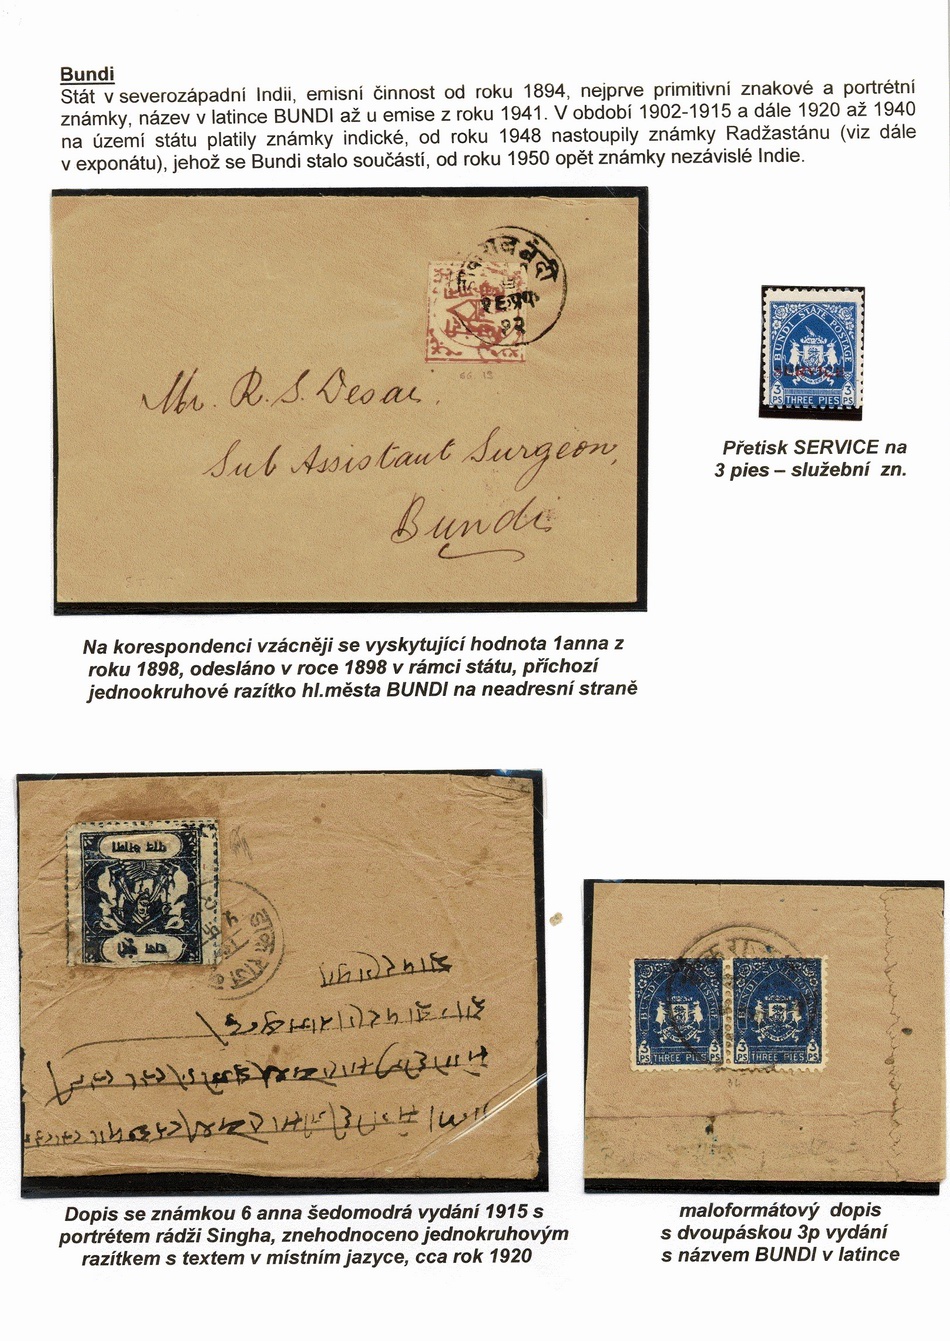 Bundi
Stát v severozápadní Indii, emisní činnost od roku 1894, nejprve primitivní znakové a portrétní
známky, název v latince BUNDI až u emise z roku 1941. V období 1902-1915 a dále 1920 až 1940
na území státu platily známky indické, od roku 1948 nastoupily známky Radžastánu (viz dále
v exponátu), jehož se Bundi stalo součástí, od roku 1950 opět známky nezávislé Indie.
Mr. R. S. Desai,
Sub Assistant Surgeon,
Bundi
BUNDI STATE POSTAGE
3 PS THREE PIES 3 PS
Přetisk SERVICE na
3 pies – služební zn.
Na korespondenci vzácněji se vyskytující hodnota 1anna z
roku 1898, odesláno v roce 1898 v rámci státu, příchozí
jednookruhové razítko hl.města BUNDI na neadresní straně
BUNDI POSTAGE
3 PS THREE PIES 3 PS
BUNDI POSTAGE
3 PS THREE PIES 3 PS
Dopis se známkou 6 anna šedomodrá vydání 1915 s
portrétem rádži Singha, znehodnoceno jednokruhovým
razítkem s textem v místním jazyce, cca rok 1920
maloformátový dopis
s dvoupáskou 3p vydání
s názvem BUNDI v latince